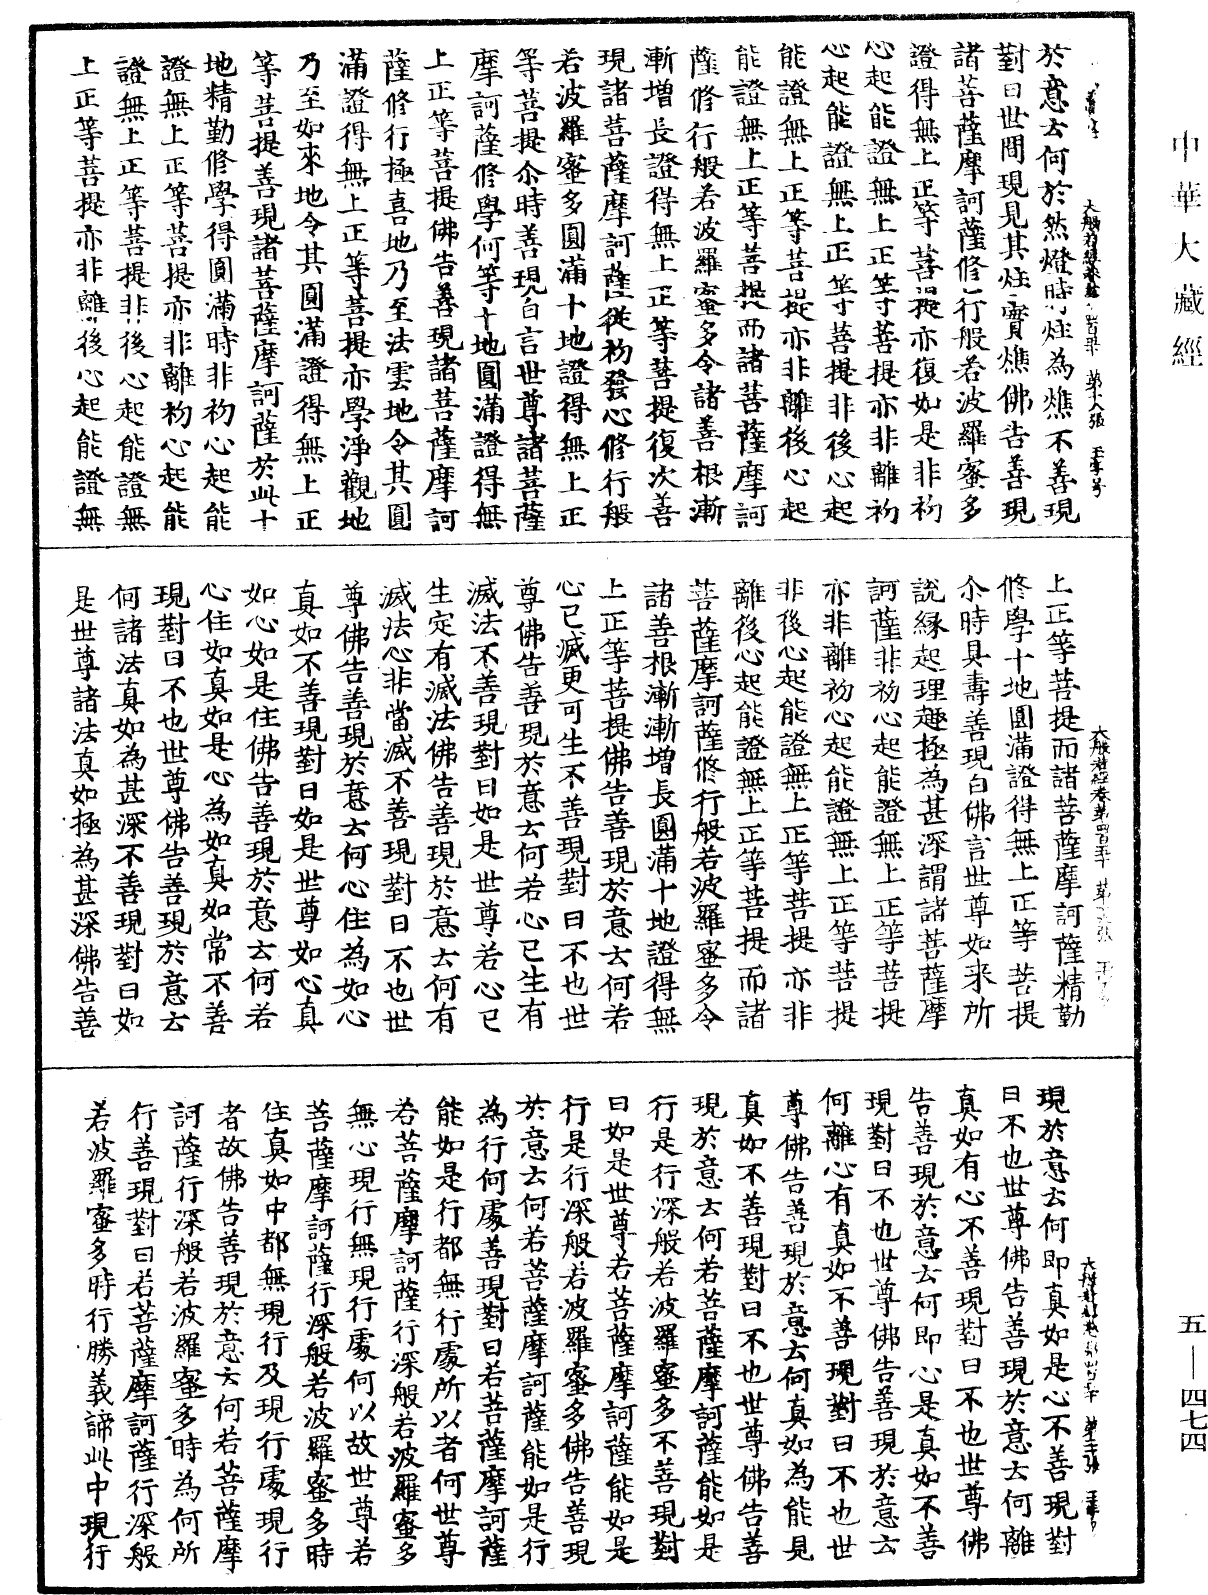 中華大藏經
於意云何於然燈時炷為燋不善現
對曰世間現見其炷實燋佛告善現
諸菩薩摩訶薩修行般若波羅蜜多
證得無上正等菩提亦復如是非初
心起能證無上正等菩提亦非離初
心起能證無上正等菩提非後心起
能證無上正等菩提亦非離後心起
能證無上正等菩提而諸菩薩摩訶
薩修行般若波羅蜜多令諸善根漸
漸增長證得無上正等菩提復次善
現諸菩薩摩訶薩從初發心修行般
若波羅蜜多圓滿十地證得無上正
等菩提尒時善現白言世尊諸菩薩
摩訶薩修學何等十地圓滿證得無
上正等菩提佛告善現諸菩薩摩訶
薩修行極喜地乃至法雲地令其圓
滿證得無上正等菩提亦學淨觀地
乃至如來地令其圓滿證得無上正
等菩提善現諸菩薩摩訶薩於此十
地精勤修學得圓滿時非初心起能
證無上正等菩提亦非離初心起能
證無上正等菩提非後心起能證無
上正等菩提亦非離後心起能證無
上正等菩提而諸菩薩摩訶薩精勤
修學十地圓滿證得無上正等菩提
尒時具壽善現白佛言世尊如来所
說緣起理趣極為甚深謂諸菩薩摩
訶薩非初心起能證無上正等菩提
亦非離初心起能證無上正等菩提
非後心起能證無上正等菩提亦非
離後心起能證無上正等菩提而諸
菩薩摩訶薩修行般若波羅蜜多令
諸善根漸漸增長圓滿十地證得無
上正等菩提佛告善現於意云何若
心已滅更可生不善現對曰不也世
尊佛告善現於意云何若心已生有
滅法不善現對曰如是世尊若心已
生定有滅法佛告善現於意云何有
滅法心非當滅不善現對曰不也世
尊佛告善現於意云何心住為如心
真如不善現對曰如是世尊如心真
如心如是住佛告善現於意云何若
心住如真如是心為如真如常不善
現對曰不也世尊佛告善現於意云
何諸法真如為甚深不善現對曰如
是世尊諸法真如極為甚深佛告善
現於意云何即真如是心不善現對
曰不也世尊佛告善現於意云何離
真如有心不善現對曰不也世尊佛
告善現於意云何即心是真如不善
現對曰不也世尊佛告善現於意云
何離心有真如不善現對曰不也世
尊佛告善現於意云何真如為能見
真如不善現對曰不也世尊佛告善
現於意云何若菩薩摩訶薩能如是
行是行深般若波羅蜜多不善現對
曰如是世尊若菩薩摩訶薩能如是
行是行深般若波羅蜜多佛告善現
於意云何若菩薩摩訶薩能如是行
為行何處善現對曰若菩薩摩訶薩
能如是行都無行處所以者何世尊
若菩薩摩訶薩行深般若波羅蜜多
無心現行無現行處何以故世尊若
菩薩摩訶薩行深般若波羅蜜多時
住真如中都無現行及現行處現行
者故佛告善現於意云何若菩薩摩
訶薩行深般若波羅蜜多時為何所
行善現對曰若菩薩摩訶薩行深般
若波羅蜜多時行勝義諦此中現行
五—四七四